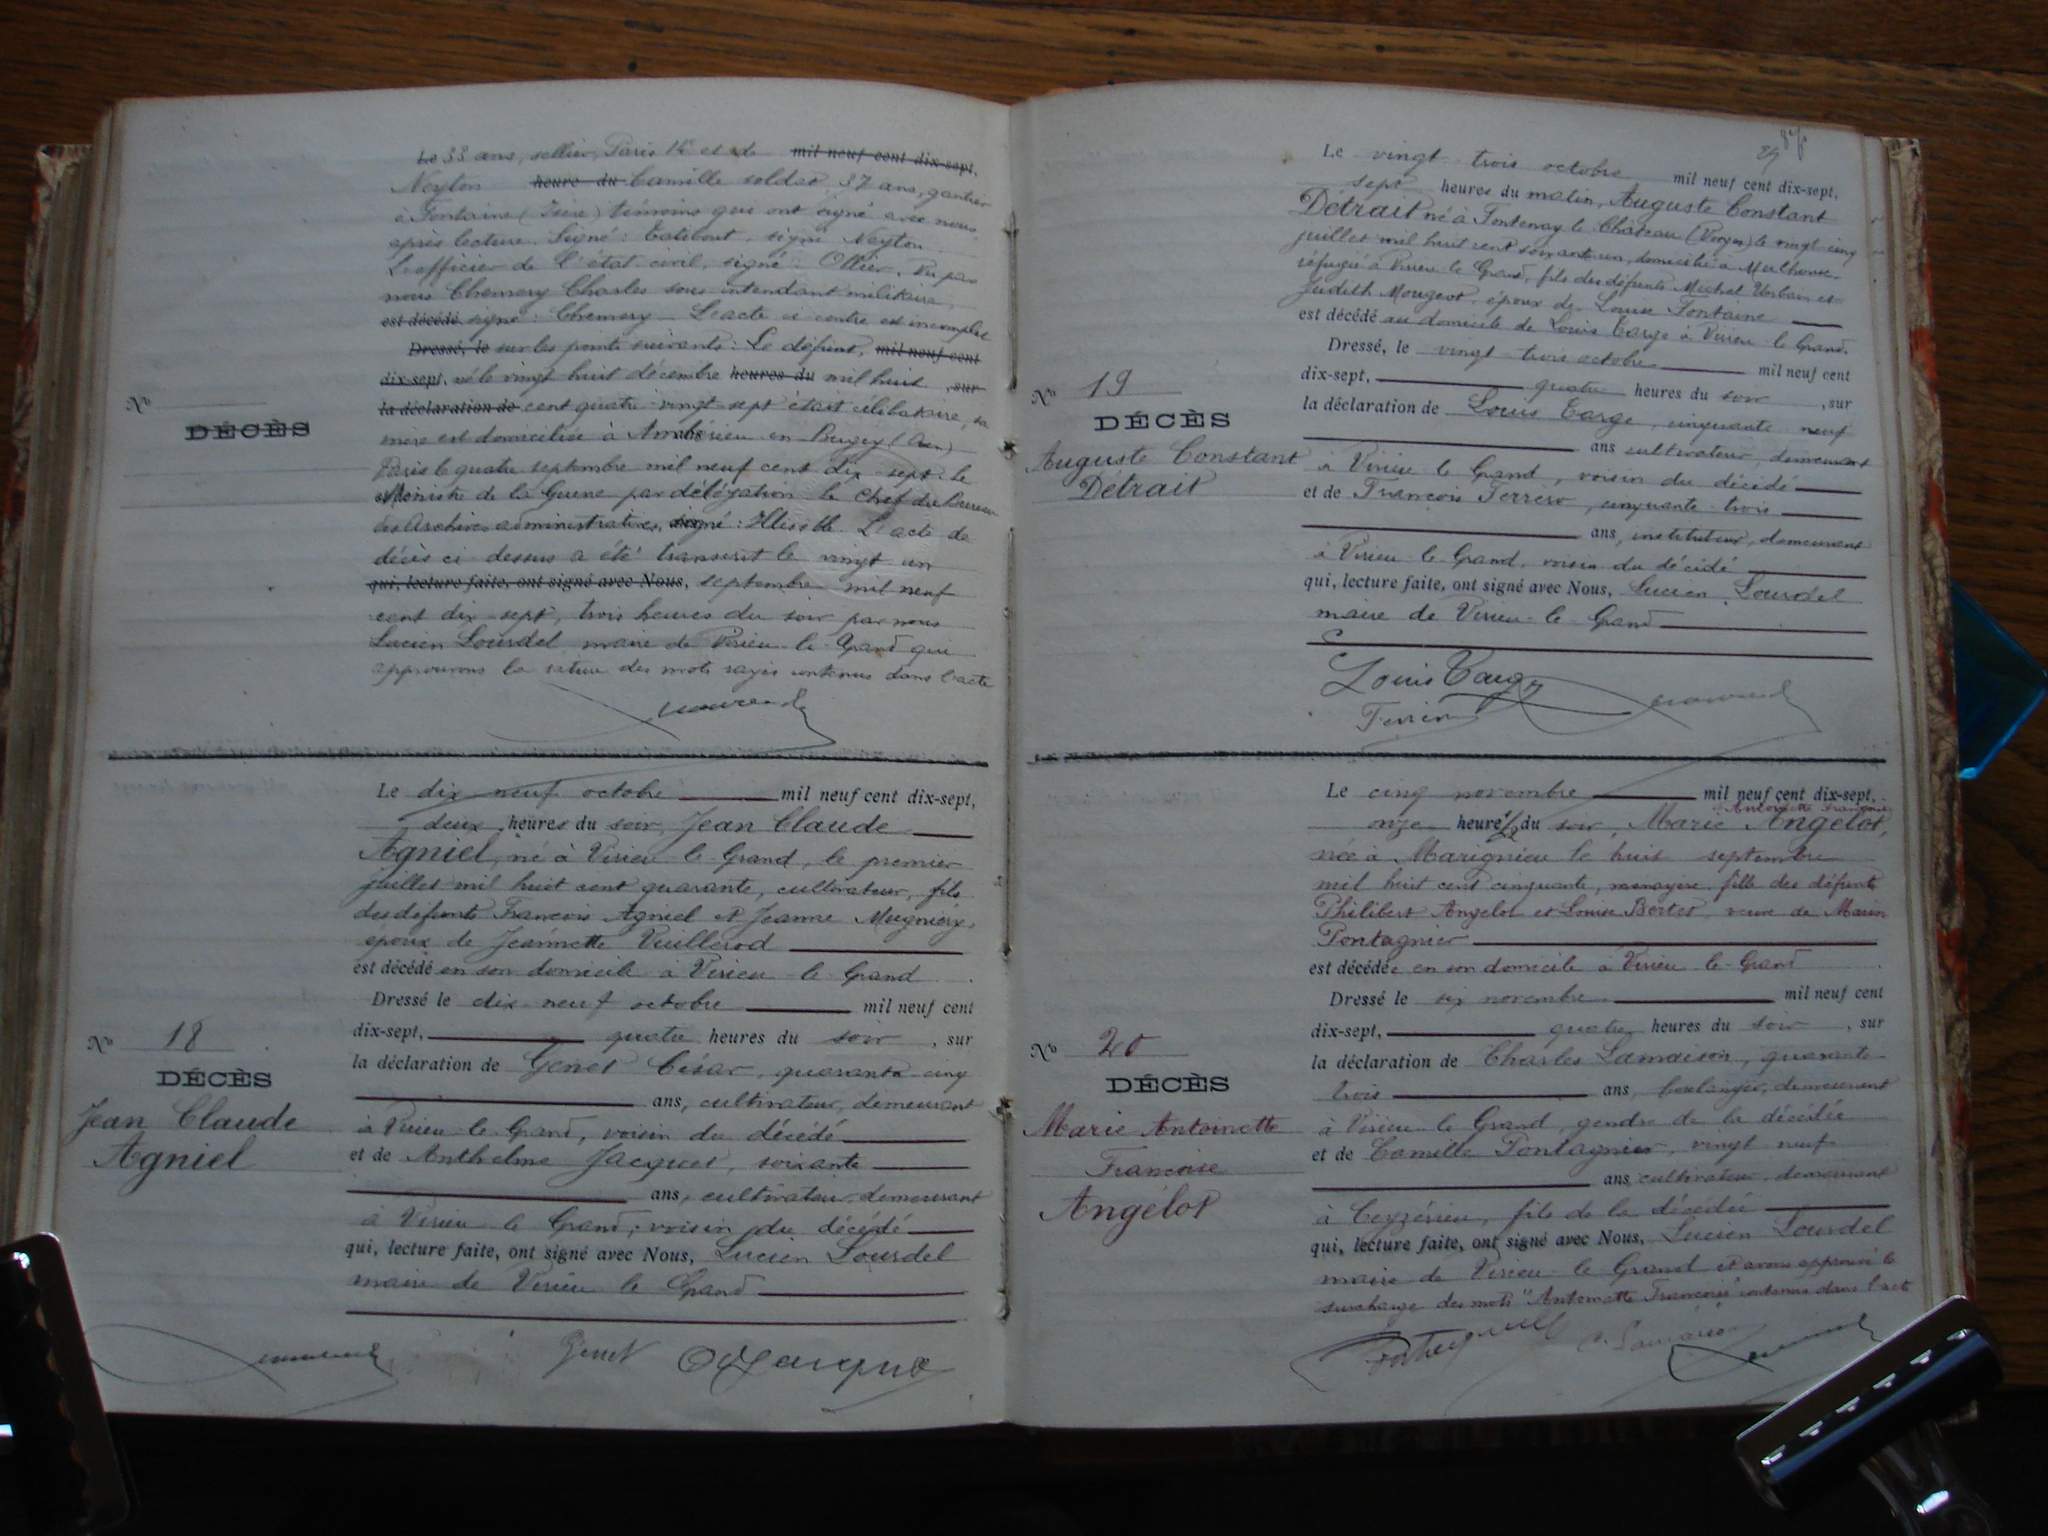 Le 33 ans, sellier, Paris 14e et de mil neuf cent dix-sept,
Neyton heure du Camille soldat 37 ans, gantier
à Fontaine (Isère) témoins qui ont signé avec nous
après lecture. Signé: signé Neyton
L'officier de l'état civil, signé: Ollier. Vu par
nous Chemery Charles sous intendant militaire,
est décédé signé: Chemery L'acte ci contre est incomplet
Dressé, le sur les points suivants: Le défunt, mil neuf cent
dix-sept, né le vingt huit décembre heures du mil huit , sur
la déclaration de cent quatre-vingt-sept était célibataire, sa
mère est domiciliée à Ambérieu en Bugey (Ain)
Paris le quatre septembre mil neuf cent dix-sept. le
Ministre de la Guerre par délégation le Chef du Bureau
des Archives administratives, signé: L'acte de
décès ci dessus a été transcrit le vingt un
qui, lecture faite, ont signé avec Nous, septembre mil neuf
cent dix-sept, trois heures du soir par nous
Lucien Lourdel maire de Virieu-le-Grand qui
approuvons la rature des mots rayés contenus dans l'acte
No
DÉCÈS
Le dix neuf octobre mil neuf cent dix-sept,
deux heures du soir, Jean Claude
Agniel, né à Virieu le Grand, le premier
juillet mil huit cent quarante, cultivateur, fils
des défunts François Agniel et Jeanne Mugniéry,
époux de Jeannette Vuillerod
est décédé en son domicile à Virieu le Grand
Dressé le dix neuf octobre mil neuf cent
dix-sept, quatre heures du soir , sur
la déclaration de Genet César, quarante cinq
ans, cultivateur, demeurant
à Virieu le Grand, voisin du décédé
et de Anthelme Jacquet, soixante
ans, cultivateur demeurant
à Virieu le Grand, voisin du décédé
qui, lecture faite, ont signé avec Nous, Lucien Lourdel
maire de Virieu le Grand
No 18
DÉCÈS
Jean Claude
Agniel
Genet
Le vingt trois octobre mil neuf cent dix-sept,
sept heures du matin, Auguste Constant
Détrait né à Fontenay le Château (Vosges) le vingt cinq
juillet mil huit cent soixante un, domicilié à Mulhouse
réfugié à Virieu le Grand, fils des défunts Michel Urbain et
Judith Mougeot, époux de Louise Fontaine
est décédé au domicile de Louis Targe à Virieu le Grand.
Dressé, le vingt-trois octobre mil neuf cent
dix-sept, quatre heures du soir , sur
la déclaration de Louis Targe, cinquante neuf
ans cultivateur, demeurant
à Virieu le Grand, voisin du décédé
et de François Ferrero, cinquante trois
ans, instituteur, demeurant
à Virieu le Grand, voisin du décédé
qui, lecture faite, ont signé avec Nous, Lucien Lourdel
maire de Virieu-le-Grand
No 19
DÉCÈS
Auguste Constant
Détrait
Louis Targe
Le cinq novembre mil neuf cent dix-sept,
Antoinette Françoise
onze heures 1/2 du soir, Marie Angelot,
née à Marignieu le huit septembre
mil huit cent cinquante, ménagère fille des défunts
Philibert Angelot et Louise Bertet, veuve de Marin
Pontagnier
est décédée en son domicile à Virieu le Grand
Dressé le six novembre mil neuf cent
dix-sept, quatre heures du soir , sur
la déclaration de Charles Lamaison, quarante
trois ans, boulanger, demeurant
à Virieu le Grand, gendre de la décédée
et de Camille Pontagnier, vingt neuf
ans cultivateur, demeurant
à Ceyzérieu, fils de la décédée
qui, lecture faite, ont signé avec Nous, Lucien Lourdel
maire de Virieu le Grand et avons approuvé la
surcharge des mots "Antoinette Françoise" contenus dans l'acte
No 20
DÉCÈS
Marie Antoinette
Francoise
Angelot
C. Lamaison